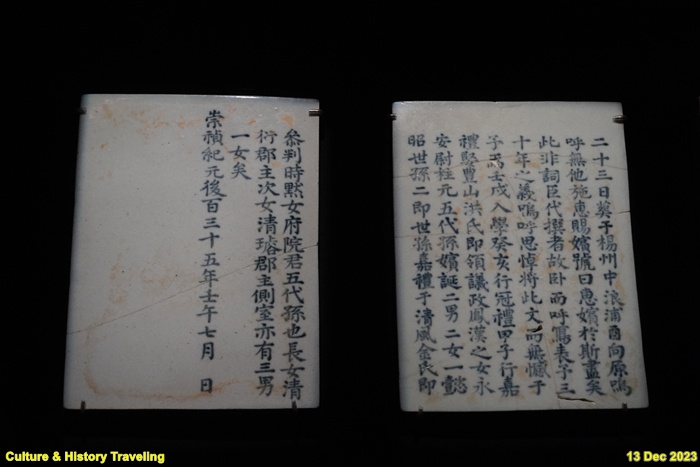 二十三日葬于楊州中浪浦酉向原嗚
呼無他施惠賜嬪號曰惠嬪於斯盡矣
此非詞臣代撰者故卧而呼寫表予三
十年之義嗚呼思悼將此文而無憾于
予而壬戌入學癸亥行冠禮甲子行嘉
禮聚豊山洪氏即領議政鳳漢之女永
安尉柱元五代孫嬪誕二男二女一懿
昭世孫二即世孫嘉禮于清風金氏即
叅判時默女府院君五代孫也長女清
衍郡主次女清璿郡主側室亦有三男
一女矣
崇禎紀元後百三十五年壬午七月 日
Culture & History Traveling
13 Dec 2023